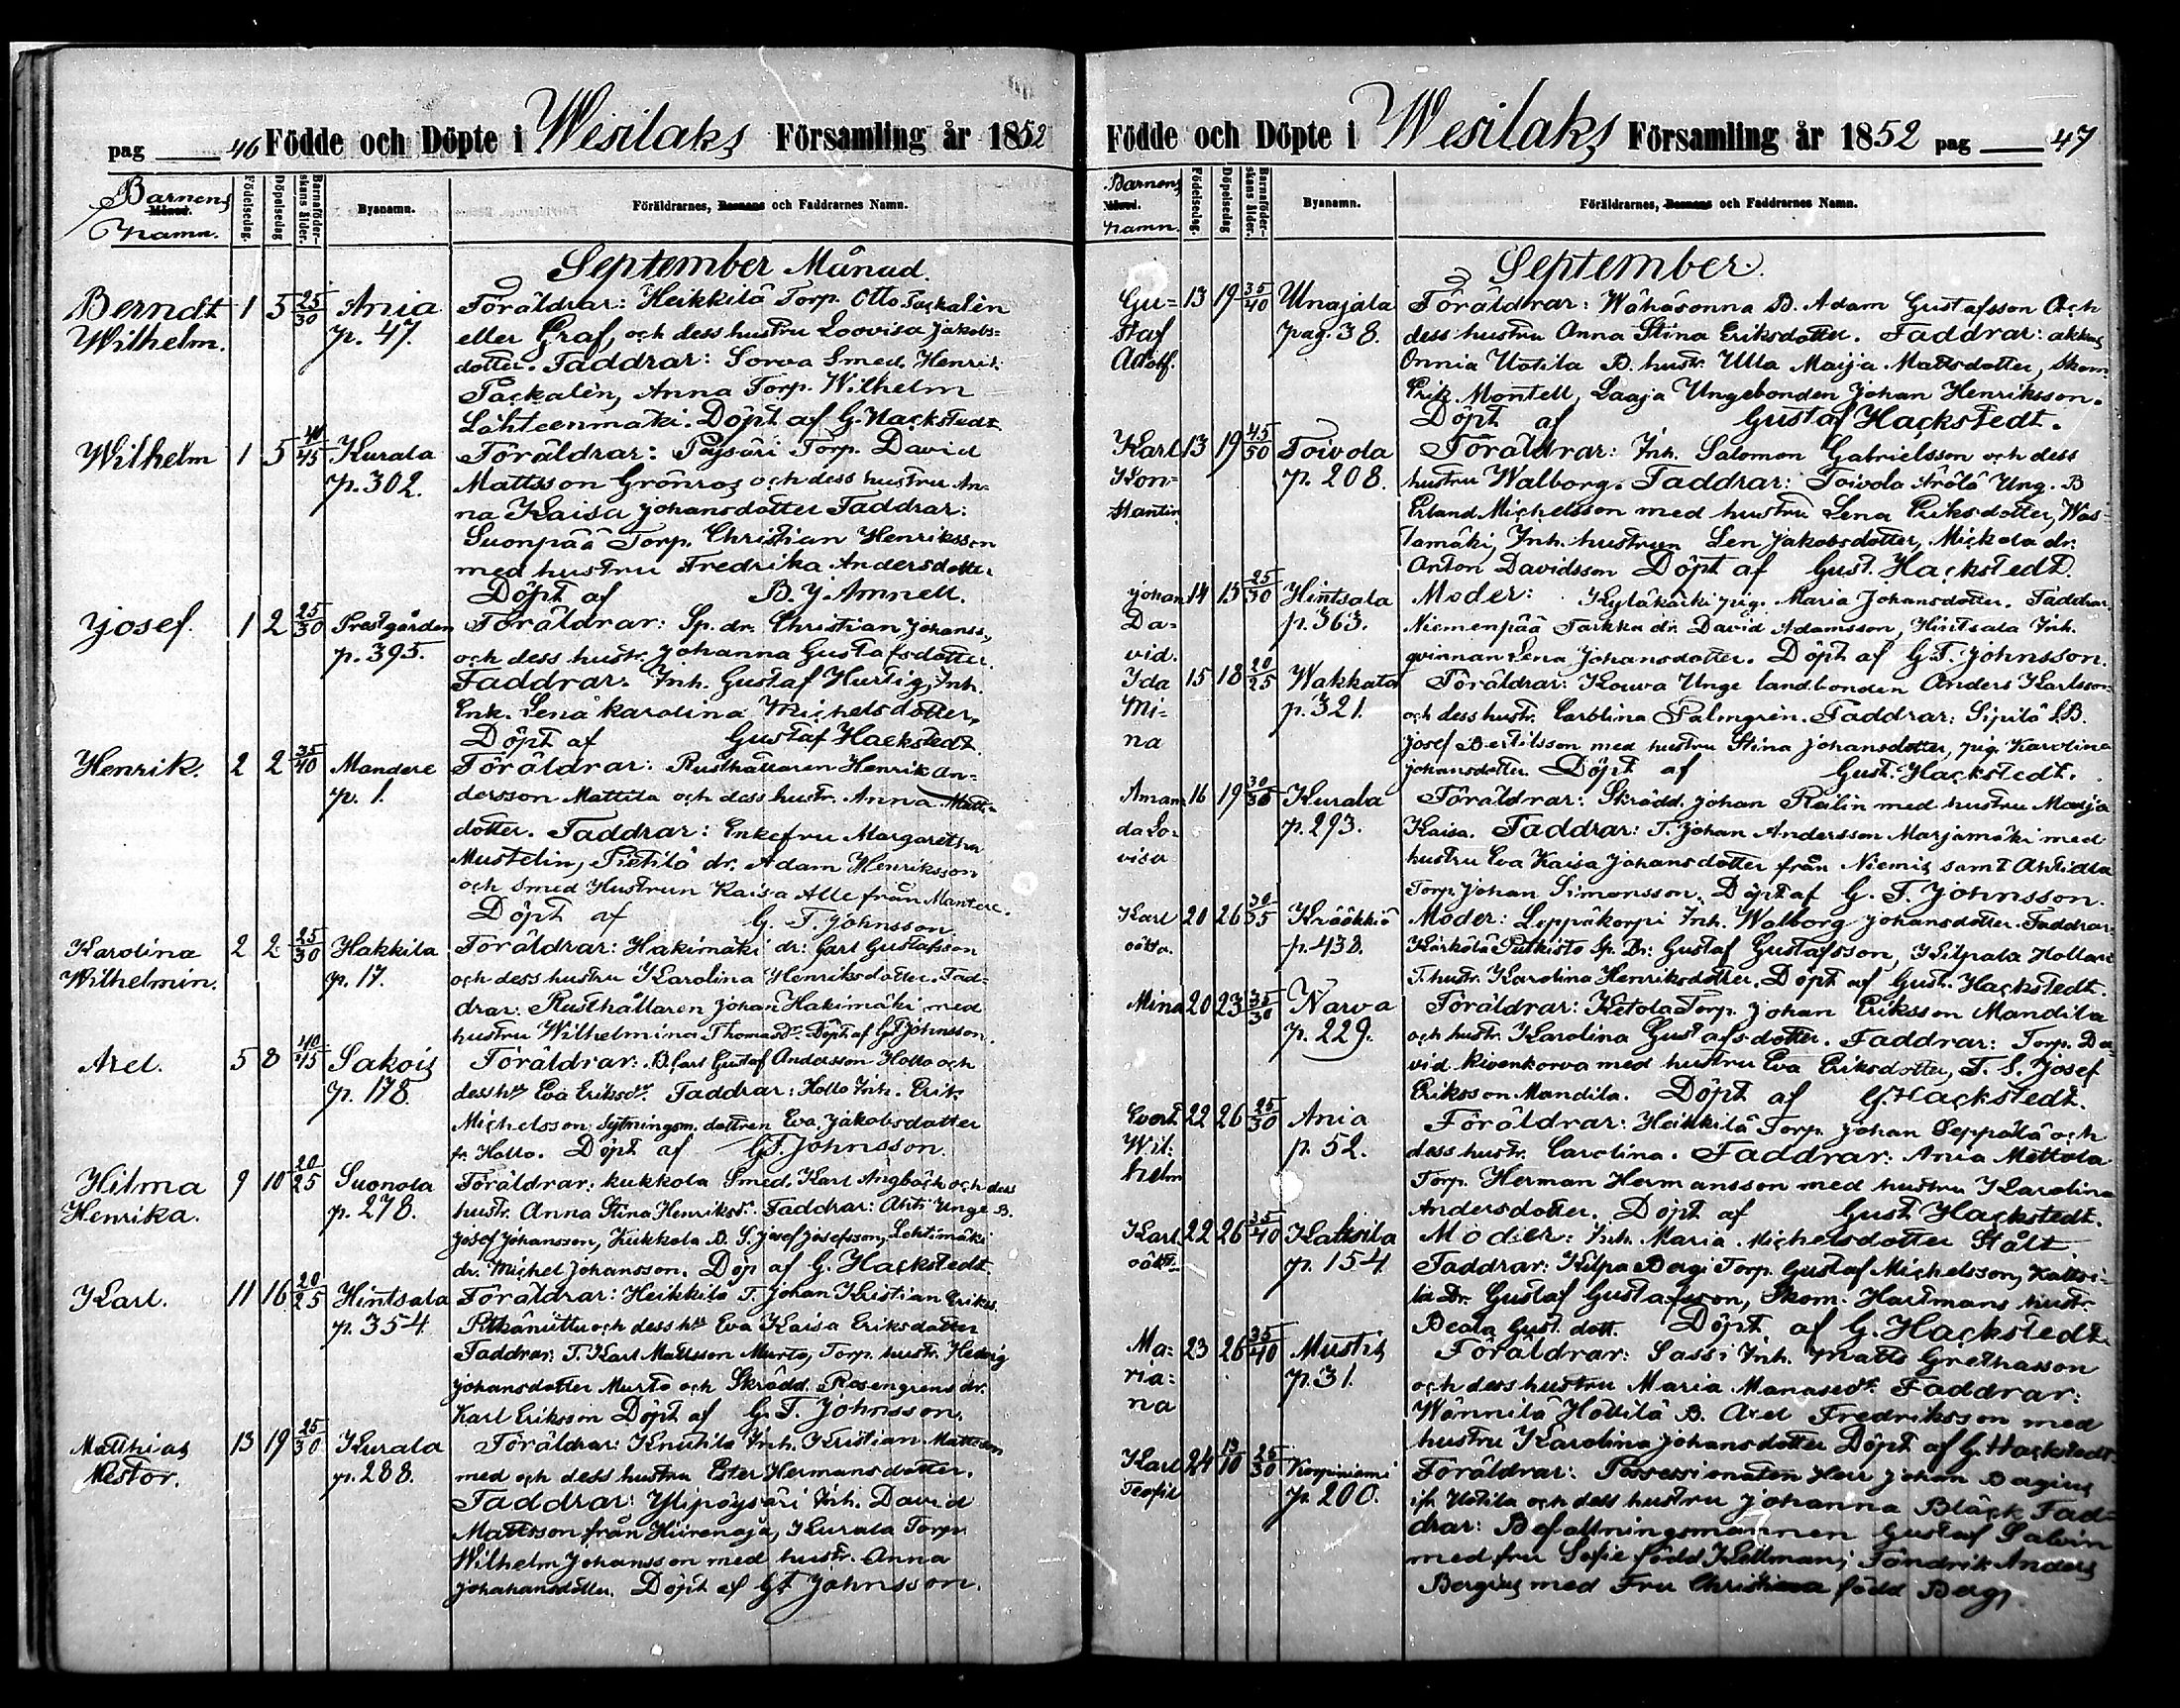 pag 46 Födde och Döpte i Wesilaks Församling år 1852
Barnens Namn. Födelsedag. Döpelsedag Barnaföderskans ålder. Bysnamn. Föräldrarnes, Barnens och Faddrarnes Namn.
September Månad.
Berndt 1 5 25/30 Ania Föräldrar: Heikkilä Torp. Otto Packalén
Wilhelm. p. 47. eller Graf, och dess hustru Loovisa Jakobs-
dotter. Faddrar: Sorva Smed. Henrik
Packalén, Anna Torp. Wilhelm
Lähteenmäki. Döpt af G. Hackstedt
Wilhelm 1 5 40/45 Kurala Föräldrar: Pöysäri Torp. David
p. 302. Mattsson Grönros och dess hustru An-
na Kaisa Johansdotter Faddrar:
Suonpää Torp. Christian Henriksson
med hustru Fredrika Andersdotter
Döpt af B. J. Amnell.
Josef. 1 2 25/30 Prestgården Föräldrar: Sp. dr. Christian Johanss.
p. 395. och dess hustr. Johanna Gustafsdotter.
Faddrar: Inh. Gustaf Hurtig, Inh.
Enk. Lena Karolina Michelsdotter,
Döpt af Gustaf Hackstedt
Henrik. 2 2 35/40 Mandere Föräldrar: Rusthållaren Henrik An-
p. 1. dersson Mattila och dess hustr. Anna Matts-
dotter. Faddrar: Enkefru Margaretha
Mustelin, Pietilä dr. Adam Henriksson
och Smed Hustrun Kaisa Alle från Mantere.
Döpt af G. T. Johnsson
Karolina 2 2 25/30 Hakkila Föräldrar: Hakimäki dr: Carl Gustafsson
Wilhelmin. p. 17. och dess hustru Karolina Henriksdotter. Fad-
drar: Rusthållaren Johan Hakimäki med
hustru Wilhelmina Thomasdr Döpt af G T Johnsson.
Axel. 5 8 40/45 Sakois Föräldrar: B. Carl Gustaf Andersson Hollo och
p. 178. dess htr Eva Eriksdr. Faddrar: Hollo Inh. Erik
Michelsson, Sytningsm. dottren Eva Jakobsdotter
fr. Hollo. Döpt af G T. Johnsson.
Hilma 9 10 20/25 Suonola Föräldrar: Kukkola Smed. Karl Ångbäck och dess
Henrika. p. 278. hustr. Anna Stina Henriksdr. Faddrar: Ahti Unge B.
Josef Johansson, Kukkola B. S. Josef Josefsson, Lehtimäki
dr. Michel Johansson. Döp af G. Hackstedt.
Karl. 11 16 20/25 Hintsala Föräldrar: Heikkilä T. Johan Kristian Eriks.
p. 354 Pitkäniittu och dess htr Eva Kaisa Eriksdotter
Faddrar: T. Karl Mattsson Murto, Torp. hustr. Hedvig
Johansdotter Murto och Skrädd. Rosengrens dr.
Karl Eriksson Döpt af G. T. Johnsson.
Matthias 13 19 25/30 Kurala Föräldrar: Knuutila Inh. Kristian Mattsson
Nestor. p. 288. med och dess hustru Ester Hermansdotter.
Faddrar: Ylipöysäri Inh. David
Mattsson från Hiirenoja, Kurala Torp.
Wilhelm Johansson med hustr. Anna
Johahansdotter. Döpt af G T Johnsson.
Födde och Döpte i Wesilaks Församling år 1852 pag 47
Barnens Namn. Födelsedag. Döpelsedag Barnaföderskans ålder. Bysnamn. Föräldrarnes, Barnens och Faddrarnes Namn.
September.
Gu- 13 19 35/40 Unajala Föräldrar: Wähäsonna B. Adam Gustafsson Och
staf pag. 38. dess hustru Anna Stina Eriksdotter. Faddrar:
Adolf. Onnia Uotila B. hustr. Ulla Maija Mattsdotter, Skom.
Erik Montell, Laaja Ungebonden Johan Henriksson.
Döpt af Gustaf Hackstedt.
Karl 13 19 45/50 Toivola Föräldrar: Inh. Salomon Gabrielsson och dess
Kon- p. 208. hustru Walborg. Faddrar: Toivola Ärölä Ung. B
stantin Erland Michelsson med hustru Lena Eriksdotter, Was-
tamäki, Inh. hustrun Len Jakobsdotter, Mickola dr.
Anton Davidsson Döpt af Gust. Hackstedt.
Johan 14 15 25/30 Hintsala Moder: Kyläkärki pig. Maria Johansdotter. Faddrar
Da- p. 363. Niemenpää Tarkka dr. David Adamsson, Hintsala Inh.
vid. qvinnan Lena Johansdotter. Döpt af G. T. Johnsson.
Ida 15 18 20/25 Wakkala Föräldrar: Kouva Unge landbonden Anders Karlsson
Mi- p. 321. och dess hustr. Carolina Palmgrén. Faddrar: Sipilä L.B.
na Josef Bertilsson med hustru Stina Johansdotter, pig. Karolina
Johansdotter. Döpt af Gust. Hackstedt.
Aman- 16 19 30/36 Kurala Föräldrar: Skrädd. Johan Relin med hustru Marja
da Lo- p. 293. Kaisa. Faddrar: T. Johan Andersson Marjamäki med
visa hustru Eva Kaisa Johansdotter från Niemis samt
Torp. Johan Simonsson. Döpt af G. T. Johnsson.
Karl 20 26 30/35 Krääkkiö Moder: Leppäkorpi Inh. Walborg Johansdotter. Faddrar:
oäkta. p. 438. Kärkölä Putkisto Sp. Dr: Gustaf Gustafsson, Kilpala Hollari
T. hustr. Karolina Henriksdotter. Döpt af Gust. Hackstedt.
Mina 20 23 25/30 Narva Föräldrar: Ketola Torp. Johan Eriksson Mandila
p. 229. och hustr. Karolina Gustafsdotter. Faddrar: Torp. Da-
vid Kivenkorva med hustru Eva Eriksdotter, T. S. Josef
Eriksson Mandila. Döpt af G. Hackstedt.
Evert 22 26 25/30 Ania Föräldrar: Heikkilä Torp. Johan Seppälä och
Wil- p. 52. dess hustr. Carolina. Faddrar: Ania Mettola
helm Torp. Herman Hermansson med hustru Karolina
Andersdotter. Döpt af Gust. Hackstedt.
Karl 22 26 35/40 Kaltsila Moder: Inh. Maria Michelsdotter Stålt
oäkt. p. 154 Faddrar: Kilpa Bergi Torp. Gustaf Michelsson, Kaltsi-
la Dr. Gustaf Gustafsson, Skom. Hartmans hustr.
Beata Gust. dott. Döpt af G. Hackstedt
Ma- 23 26 35/40 Mustis Föräldrar: Sassi Inh. Matts Grethasson
ria- p. 31. och dess hustru Maria Manasedr. Faddrar:
na Wännilä Hollilä B. Axel Fredriksson med
hustru Karolina Johansdotter Döpt af G. Hackstedt
Karl 24 13/10 25/30 Korpiniemi Föräldrar: Possessionaten Herr Johan Bergius
Teofil p. 200. Uotila och dess hustru Johanna Bläck Fad-
drar: Befallningsmannen Gustaf Salvin
med fru Sofie född Kellman; Fändrik Anders
Bergius med Fru Christina född Berg.